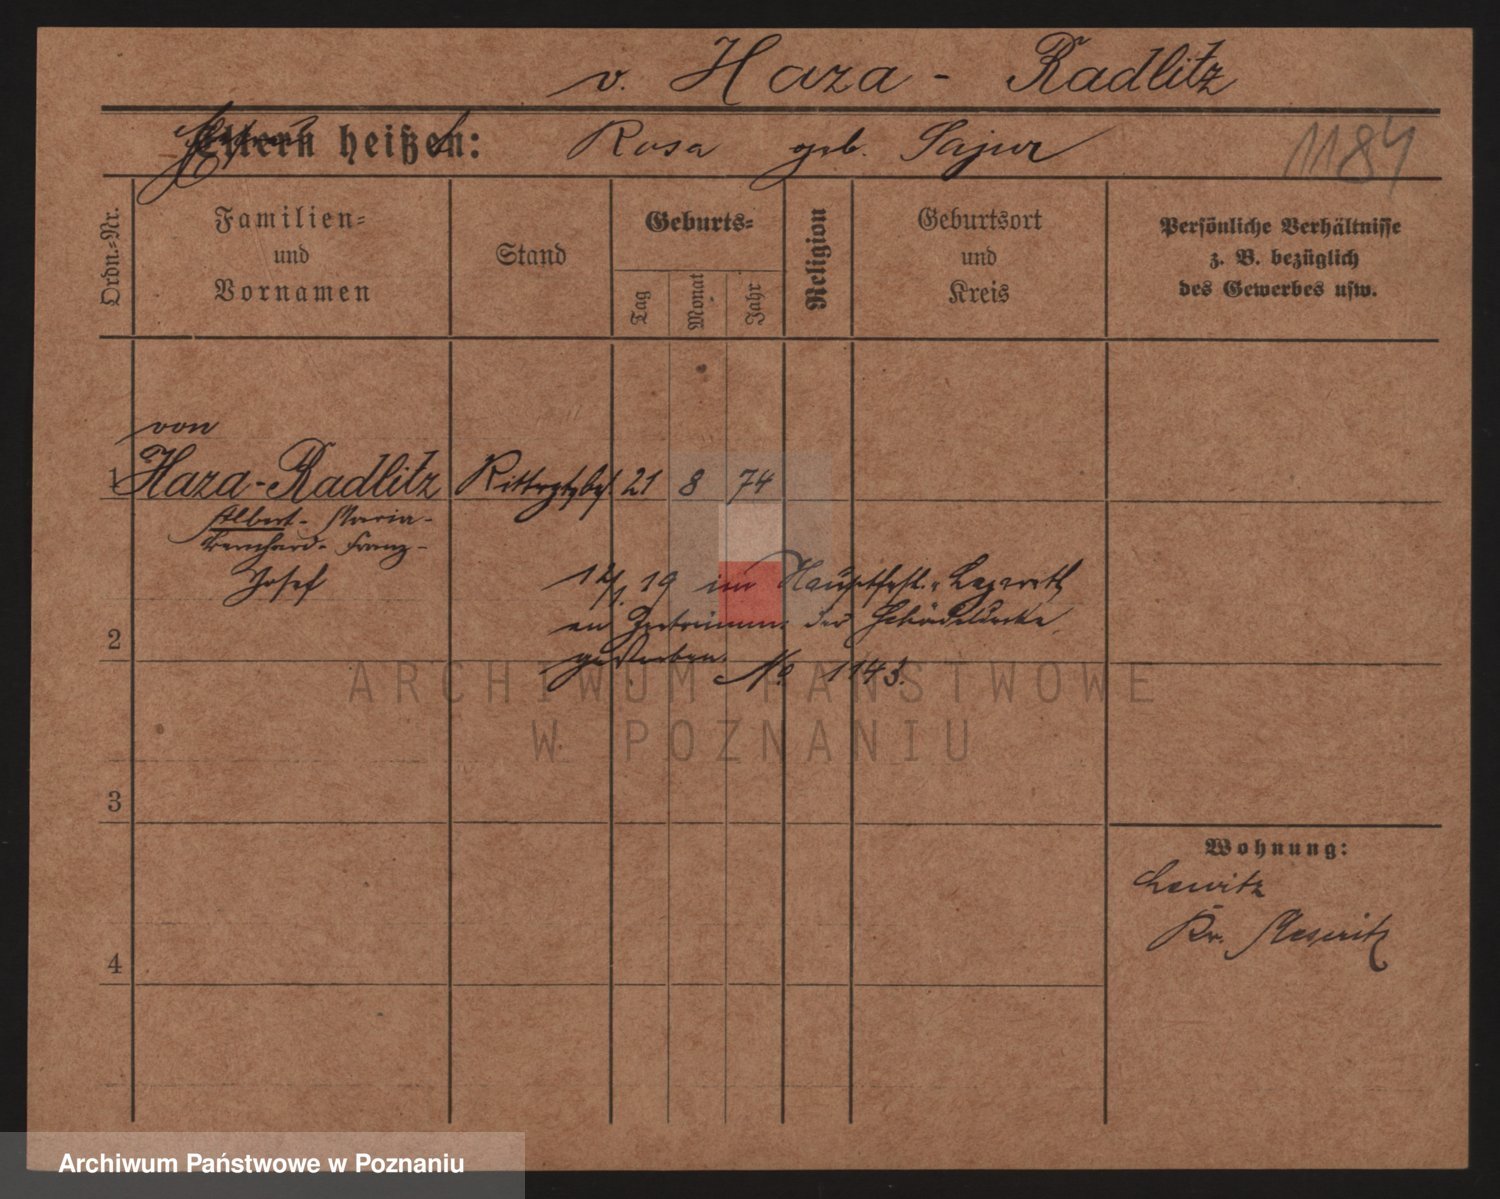 v. Haza - Radlitz
Eltern heißen: Rosa geb. Sajur
1184
Ordn.=Nr.
Familien=
und
Vornamen
Stand
Geburts=
Tag
Monat
Jahr
Religion
Geburtsort
und
Kreis
Persönliche Verhältnisse
z. B. bezüglich
des Gewerbes usw.
von
1 Haza-Radlitz Rittrgtsbes. 21 8 74
Albert- Maria-
Bernhard- Franz-
Josef
19 im Hauptfest. Lazareth
an Zertrümm. der Schädeldecke
gestorben. No 1143.
2
3
4
Wohnung:
Lewitz
Kr. Meseritz
ARCHIWUM PAŃSTWOWE
W POZNANIU
Archiwum Państwowe w Poznaniu